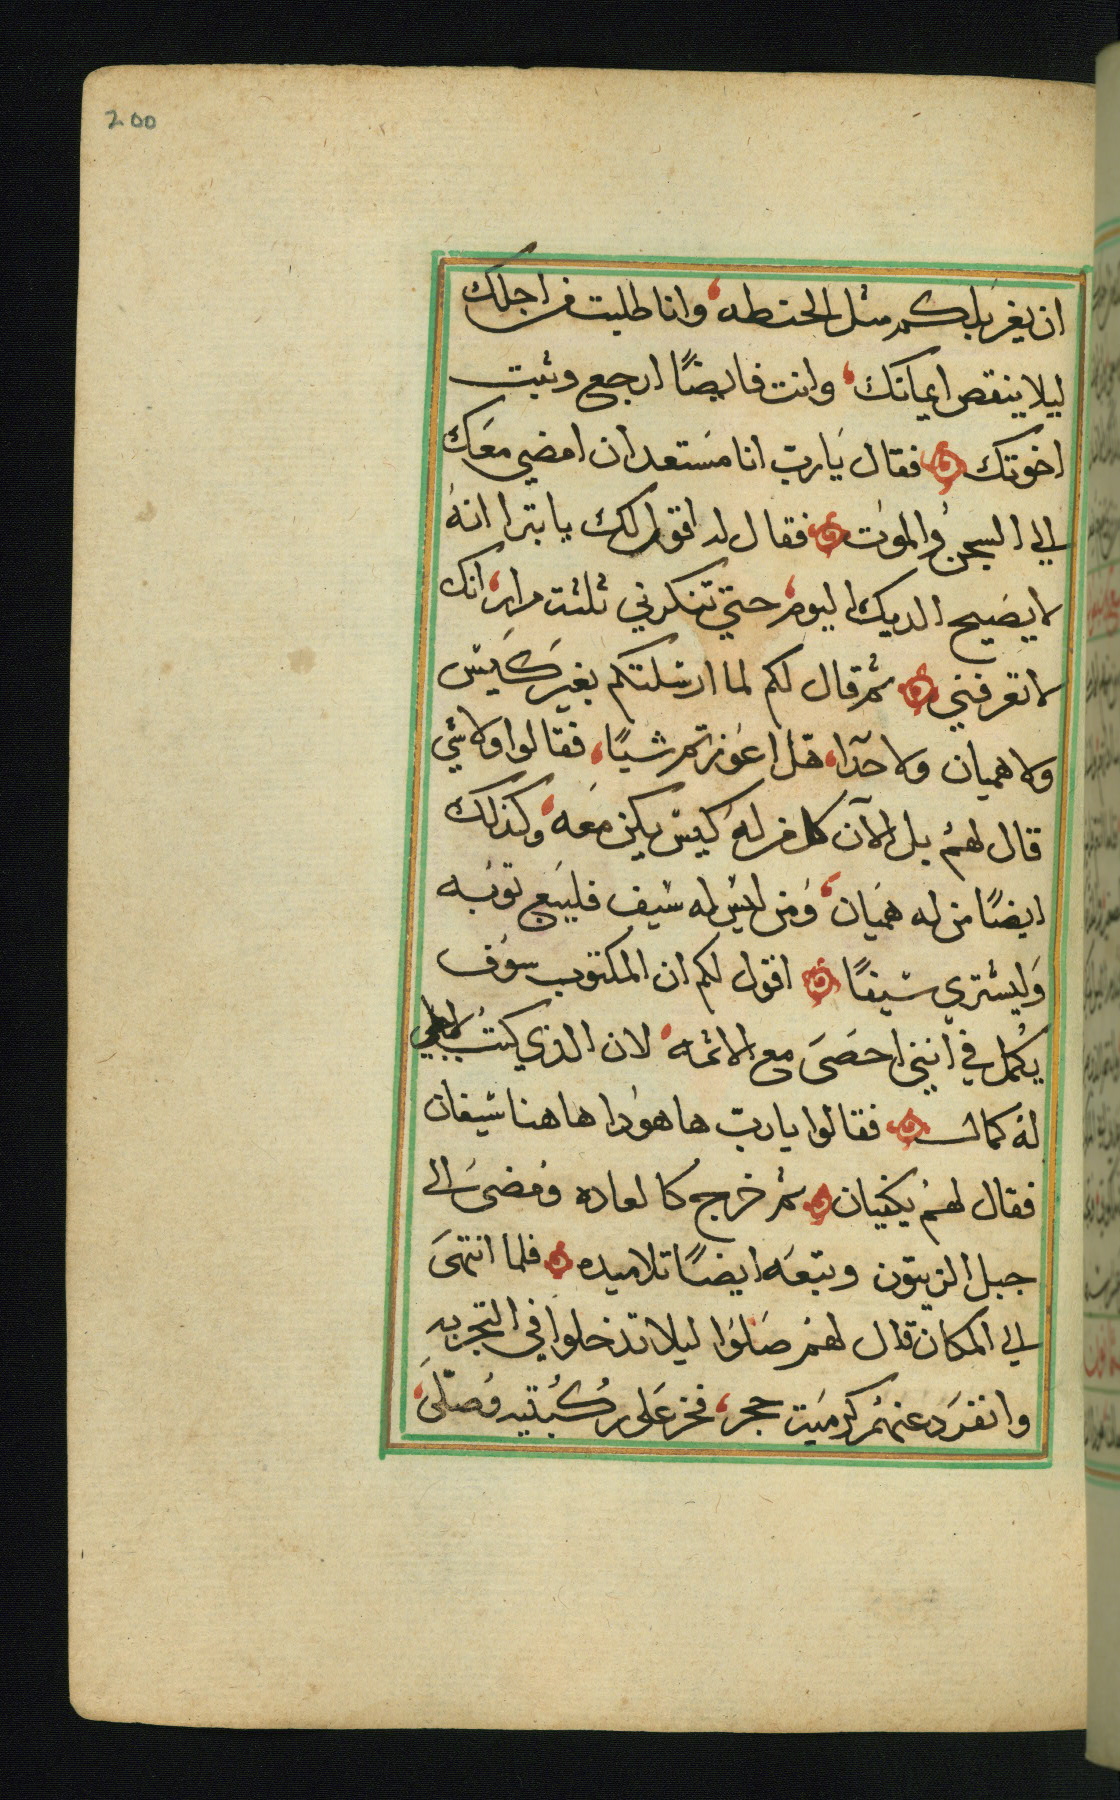 200
ان يغربلكم مثل الحنطه، وانا طلبت من اجلك
ليلا ينقص ايمانك، وانت فايضًا ارجع وثبت
اخوتك فقال يَارب انا مَستعد ان امضي معَك
الي السجن والموت فقال له اقول لك يا بترا انهُ
لا يصَيح الديك اليوم، حتي تنكرني ثلثة مرار، انك
لا تعرفني ثم قال لكم لما ارسَلتكم بغير كيس
ولا هميان ولا حآدا، هَل اعَوزتم شيًا، فقالوا ولا شي
قال لهم بل الآن كل من لهُ كيس يكن معَه، وكذلك
ايضًا من له هميَان، وَمن ليس له سَيف فليبَع توبَه
وَليشتري سَيفًا اقول لكم ان المكتوب سوف
يكمل في انني احصَىَ مع الاثمه، لان الذي كتب لاجلي
لهُ كمال فقالوا يا رب ها هوُدا هاهنا سَيفان
فقال لهم يكفيان ثم خرج كالعاده وَمضى الى
جبل الزيتون وتبعَه ايضًا تلاميده فلما انتهىَ
الي المكان قال لهم صَلوا ليلا تدخلوا في التجربه
وانفرَد عنهم كرميَة حجر، فخر عَلى ركبُتيه وَصَلىَ،